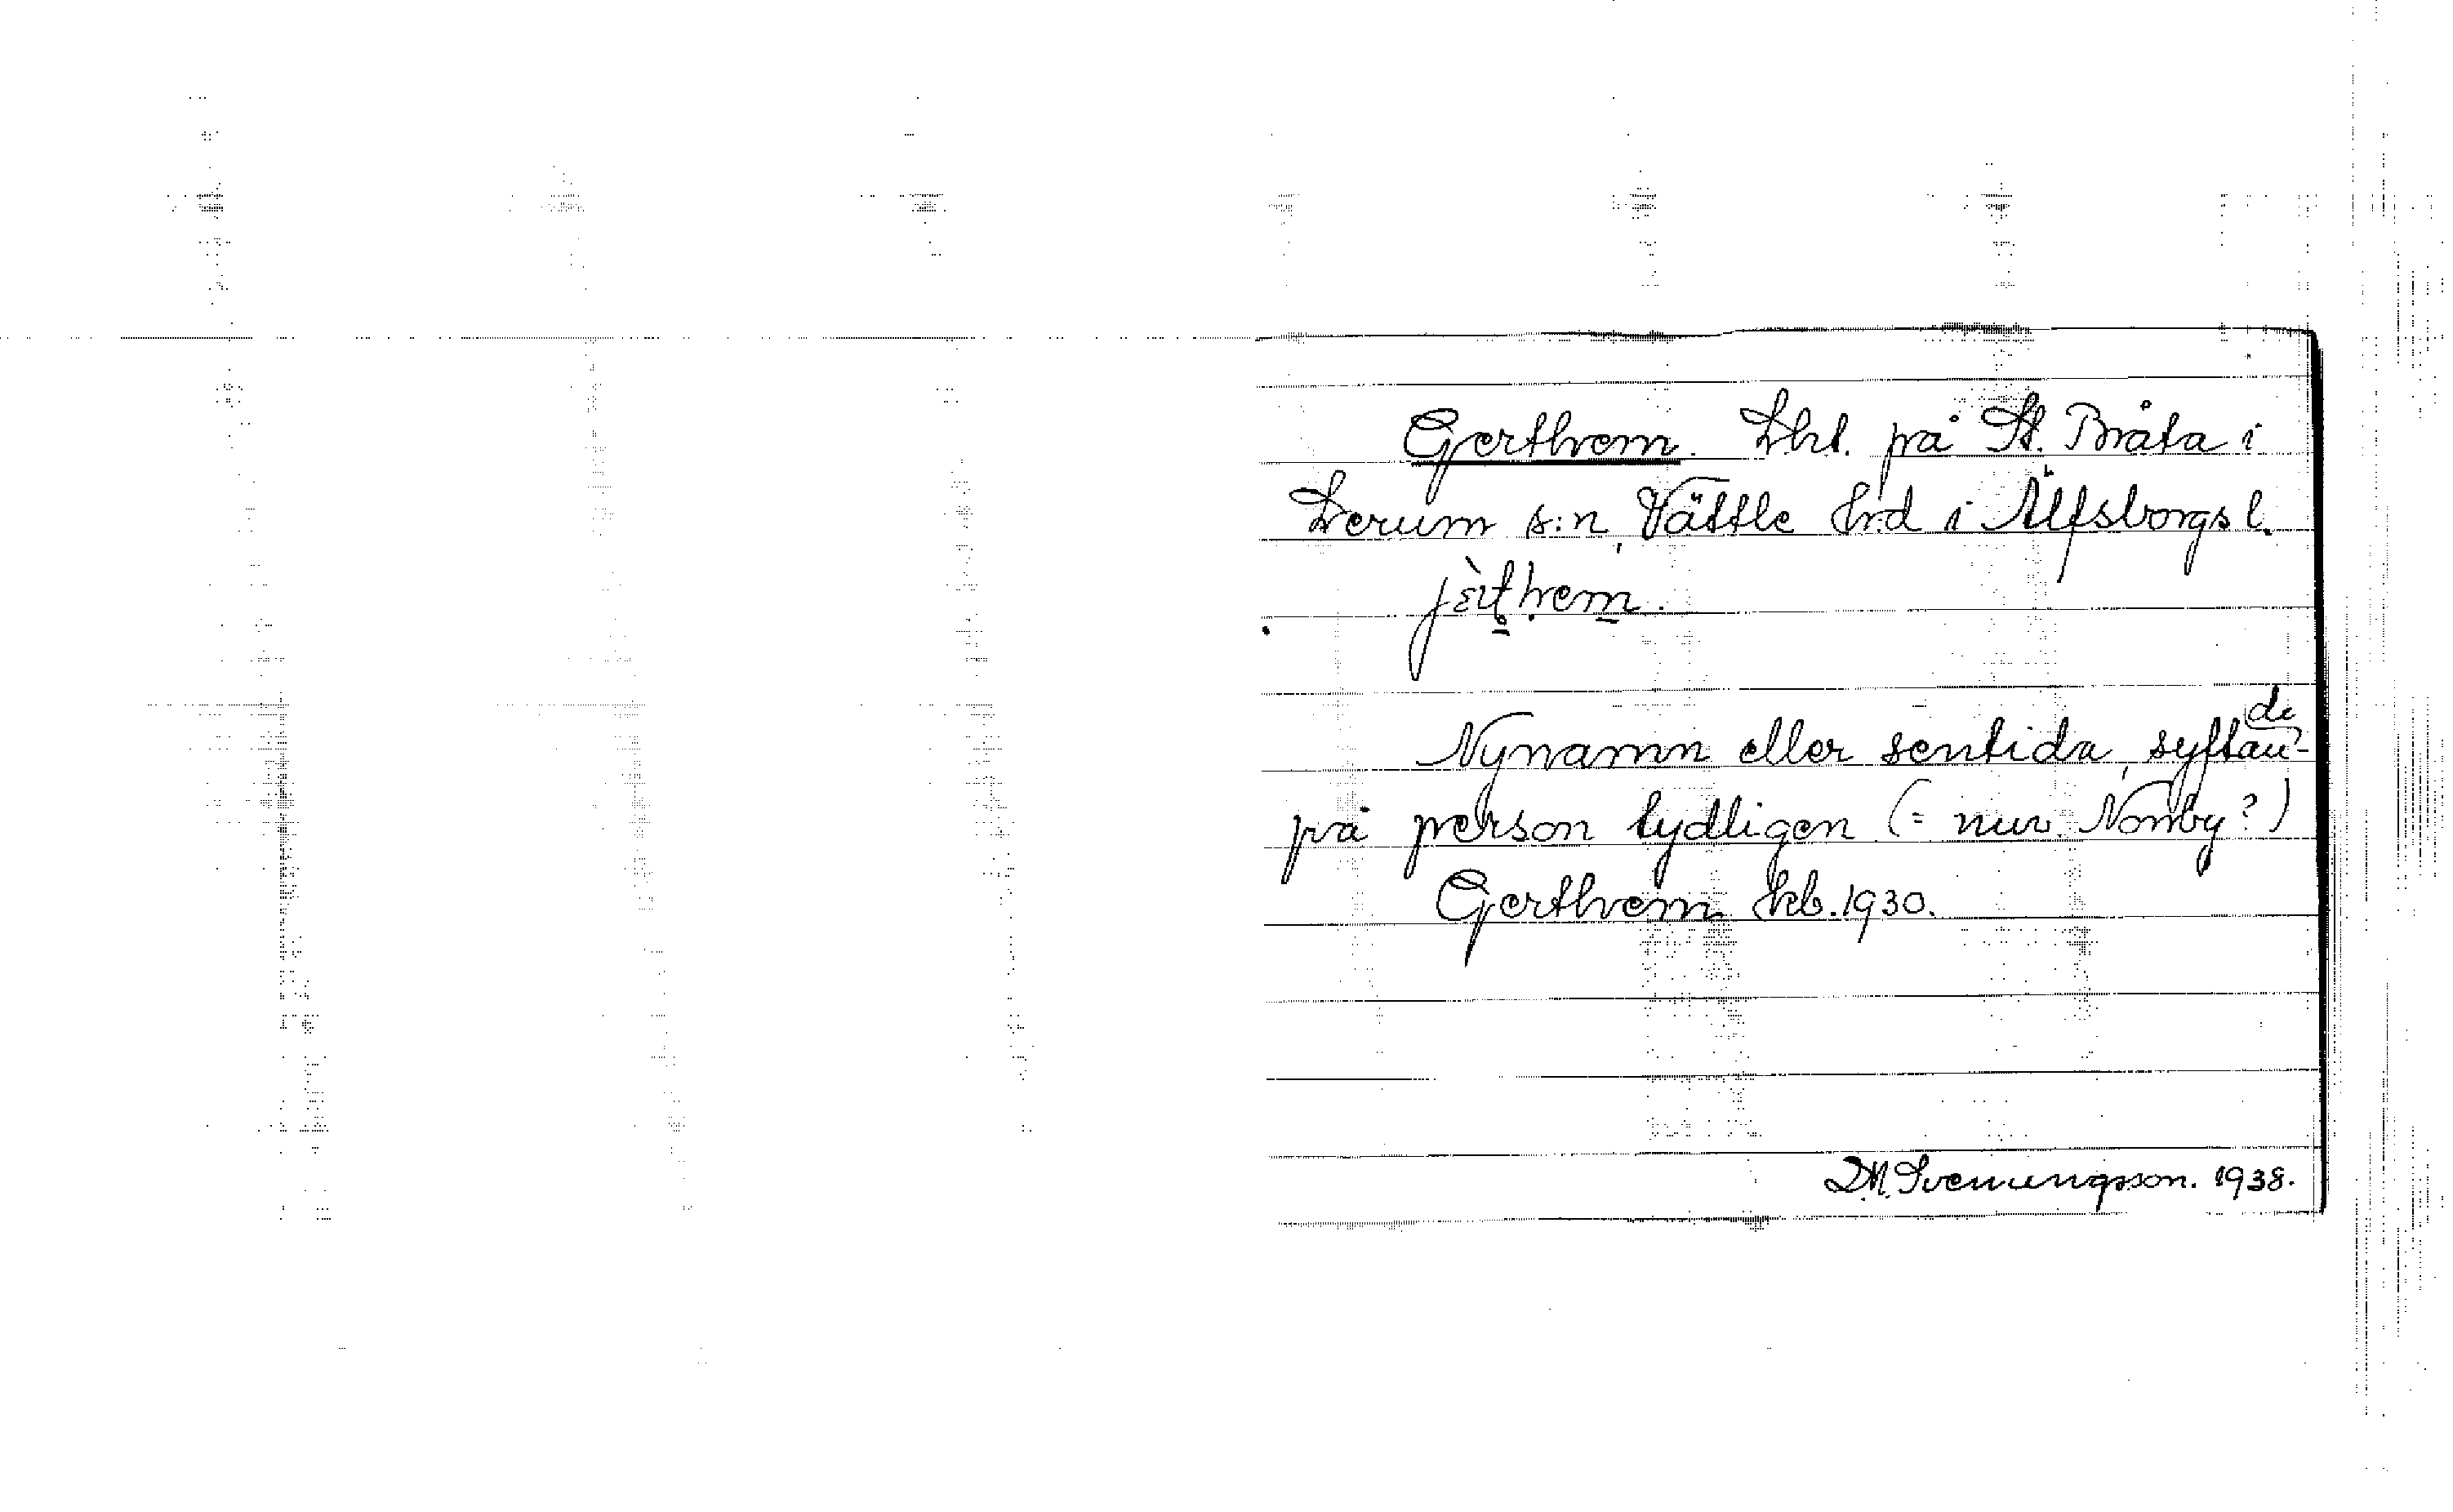 Gerthem. Lht. på St. Bråta i
Lerum s:n, Vättle Hrd i Älfsborgs l.
Nynamn eller sentida, syftande
på person tydligen (= nuv. Nornby?)
Gerthem kb. 1930.
D.M. Svenungsson. 1938.